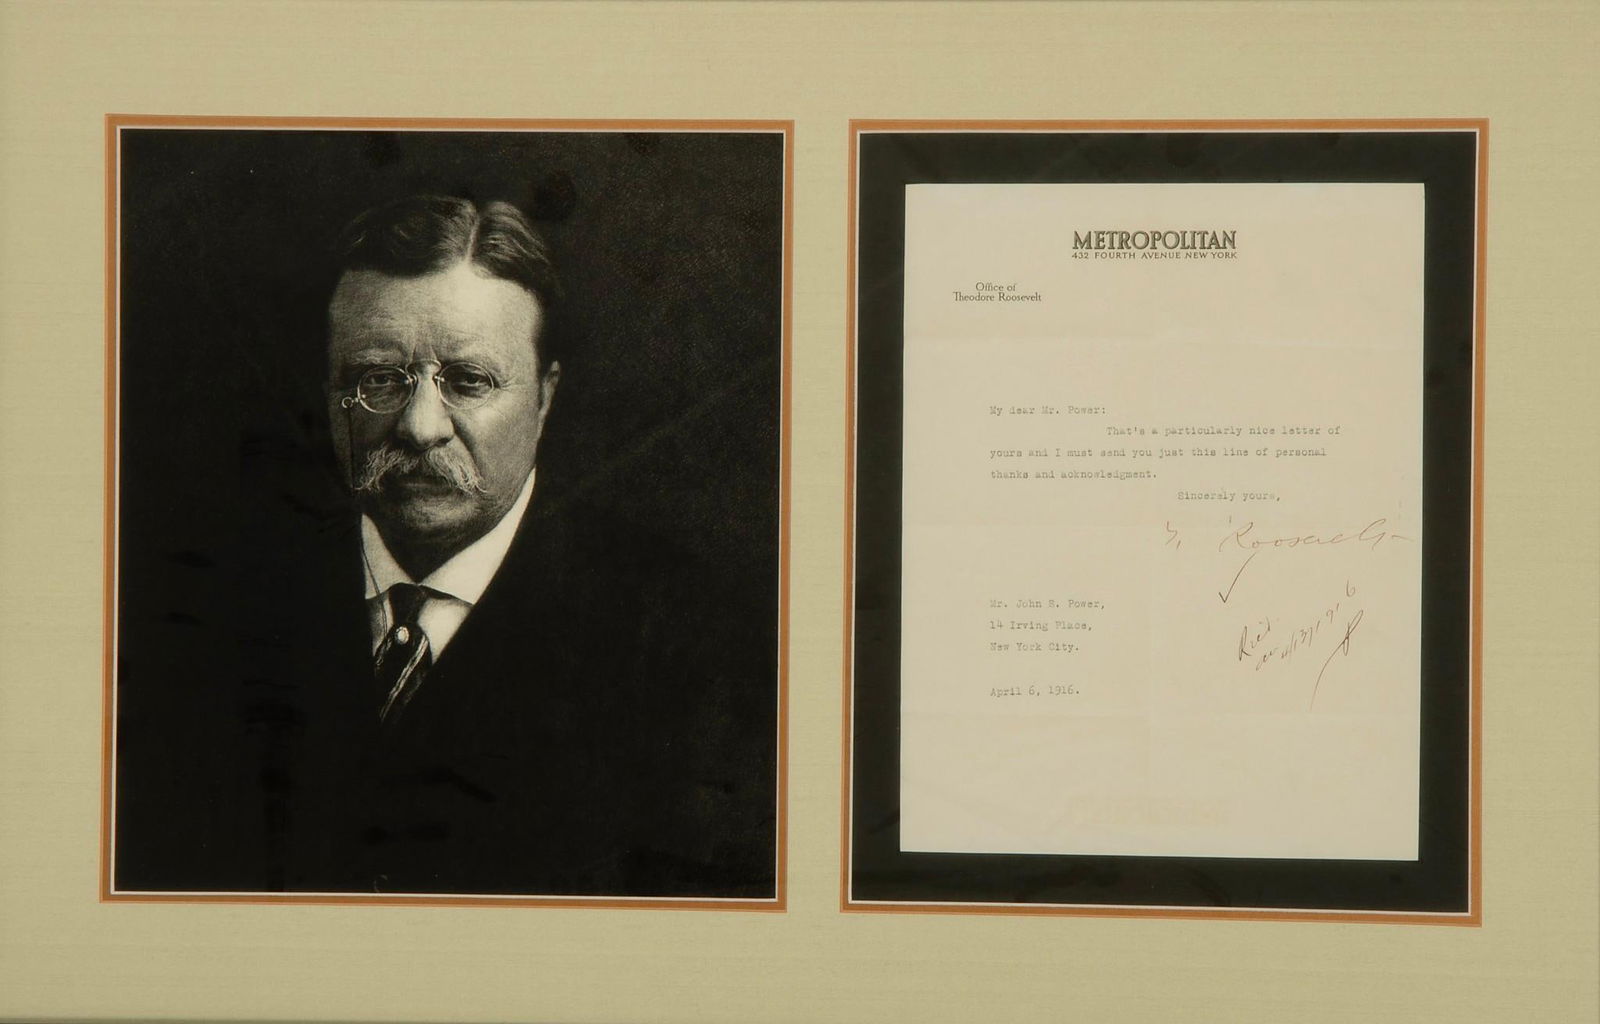 METROPOLITAN
432 FOURTH AVENUE NEW YORK
Office of
Theodore Roosevelt
My dear Mr. Power:
That's a particularly nice letter of
yours and I must send you just this line of personal
thanks and acknowledgment.
Sincerely yours,
T. Roosevelt
Mr. John S. Power,
14 Irving Place,
New York City.
April 6, 1916.
Rec'd
on 4/13/1916